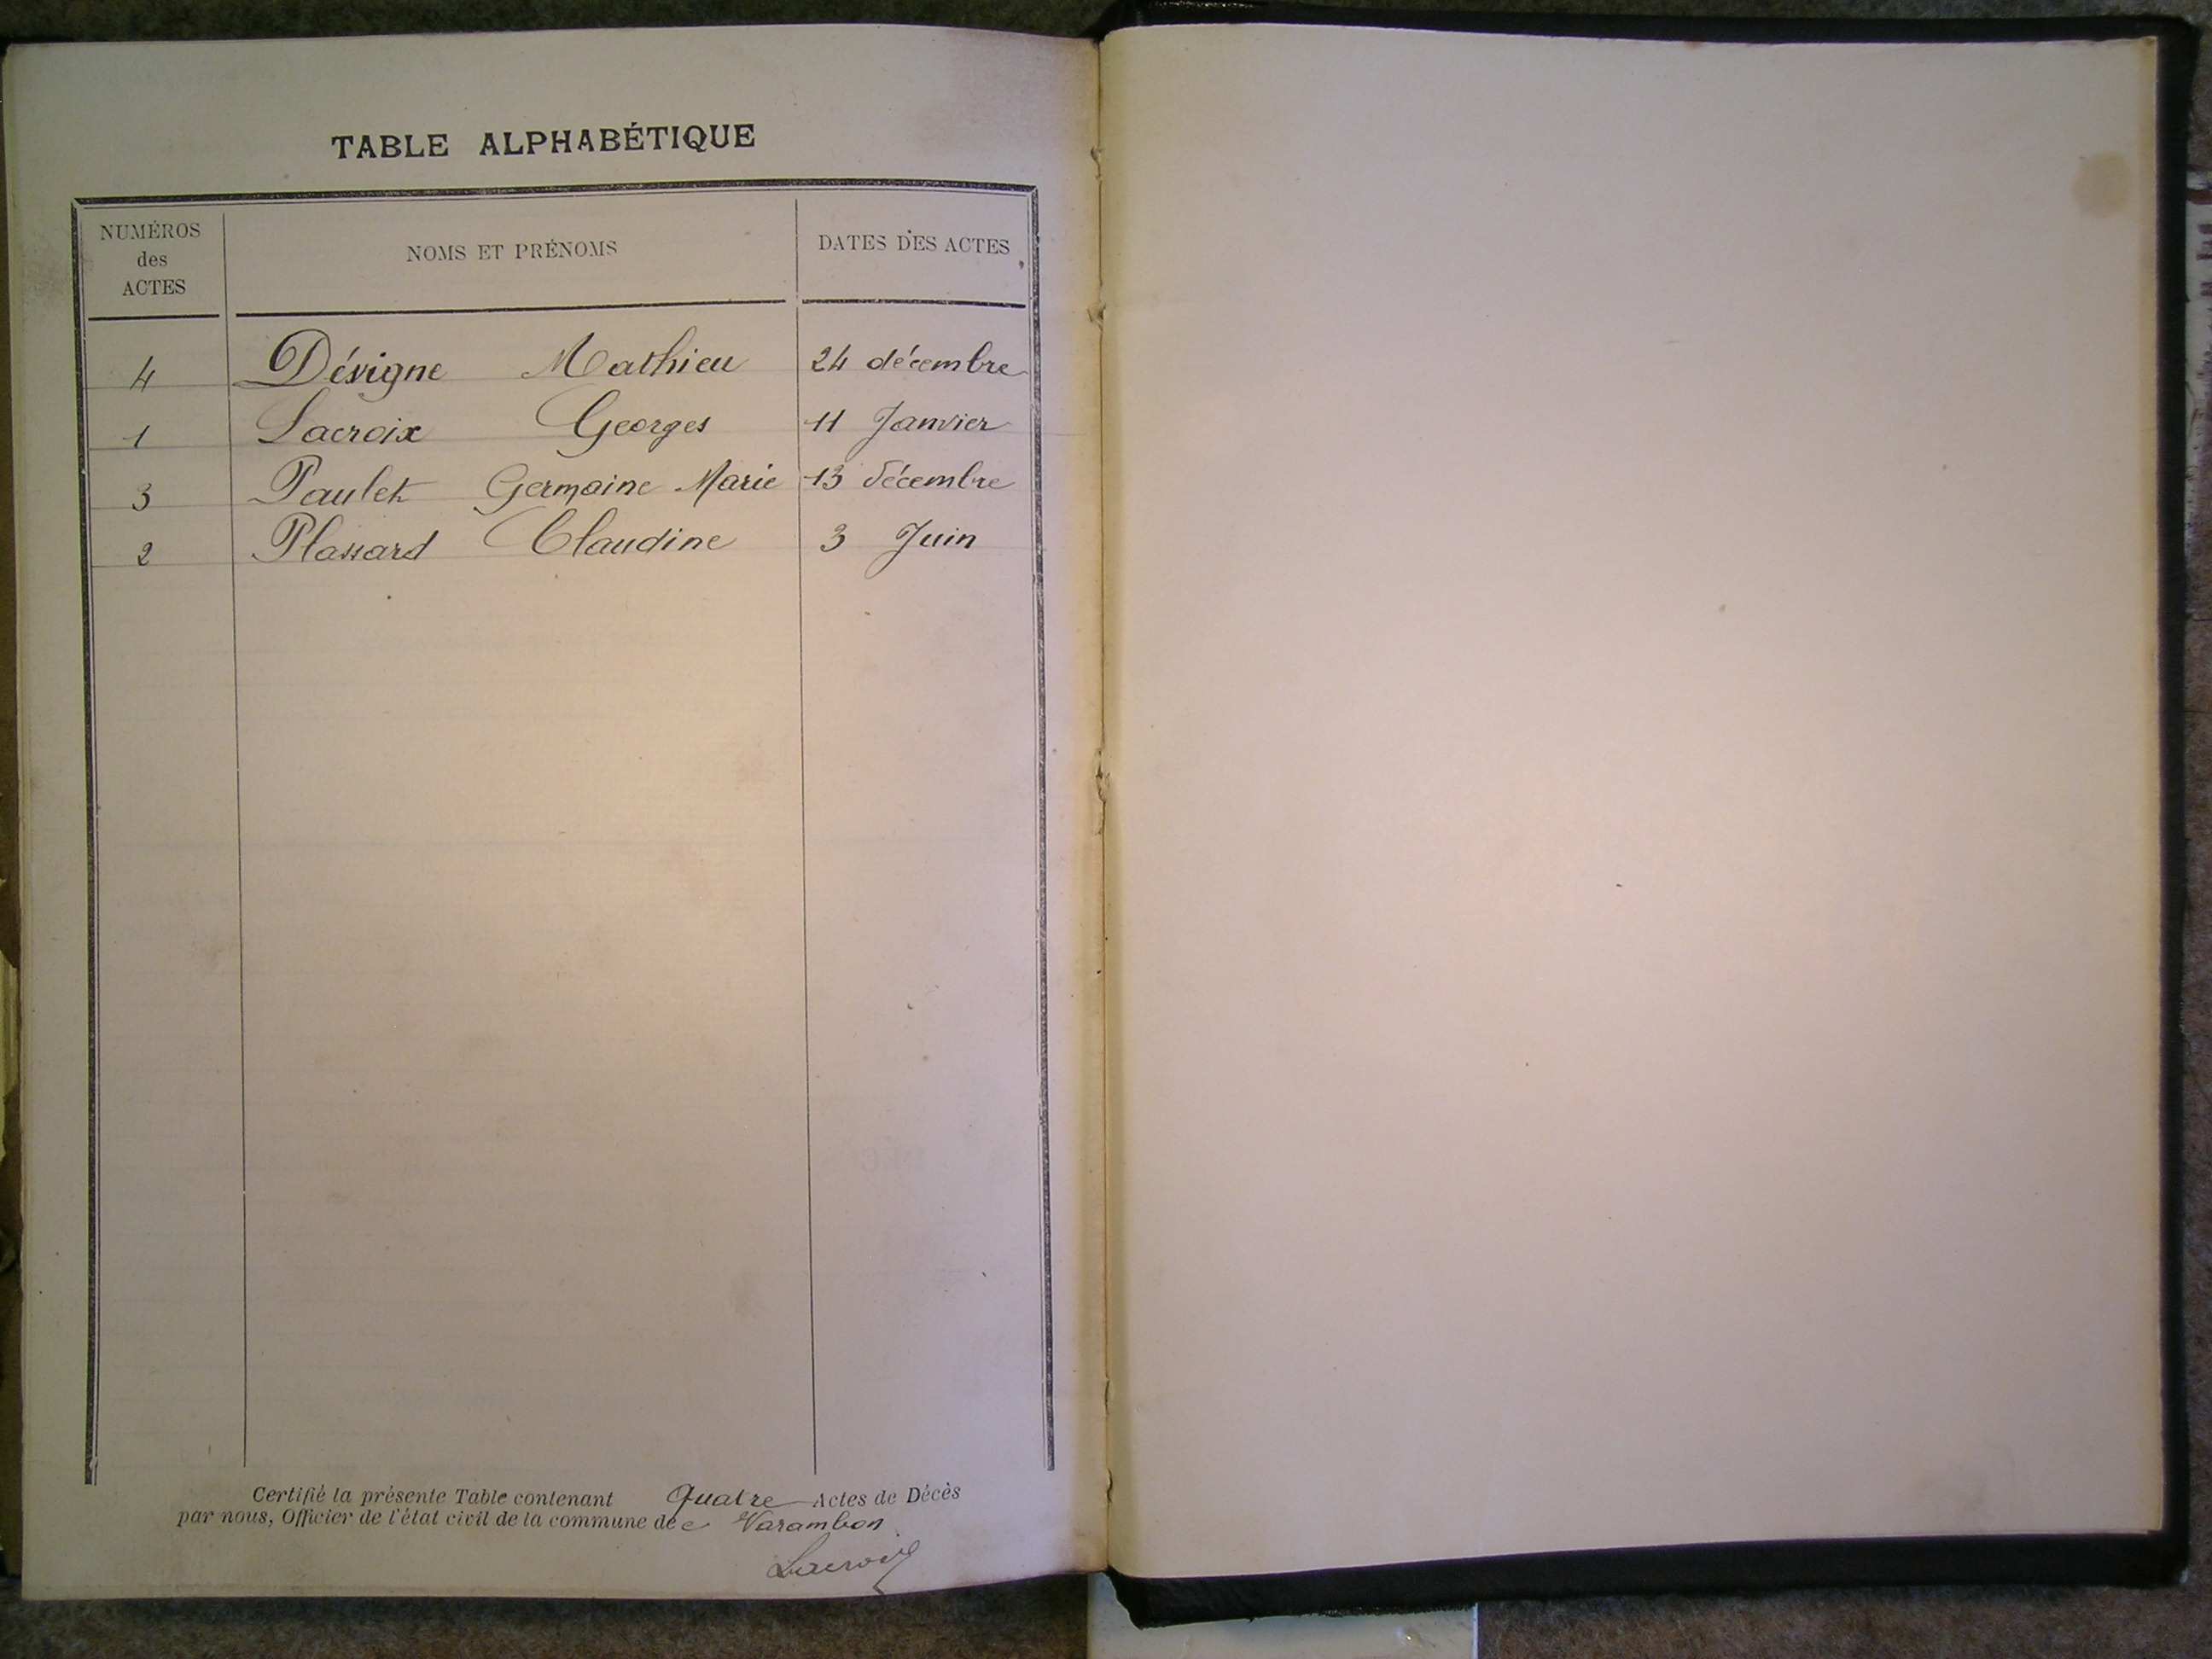 TABLE ALPHABÉTIQUE
NUMÉROS
des
ACTES
NOMS ET PRÉNOMS
DATES DES ACTES
4 Dévigne Mathieu 24 décembre
1 Lacroix Georges 11 Janvier
3 Paulet Germaine Marie 13 décembre
2 Plassard Claudine 3 Juin
Certifié la présente Table contenant Quatre Actes de Décès
par nous, Officier de l'état civil de la commune de Varambon
Lacroix